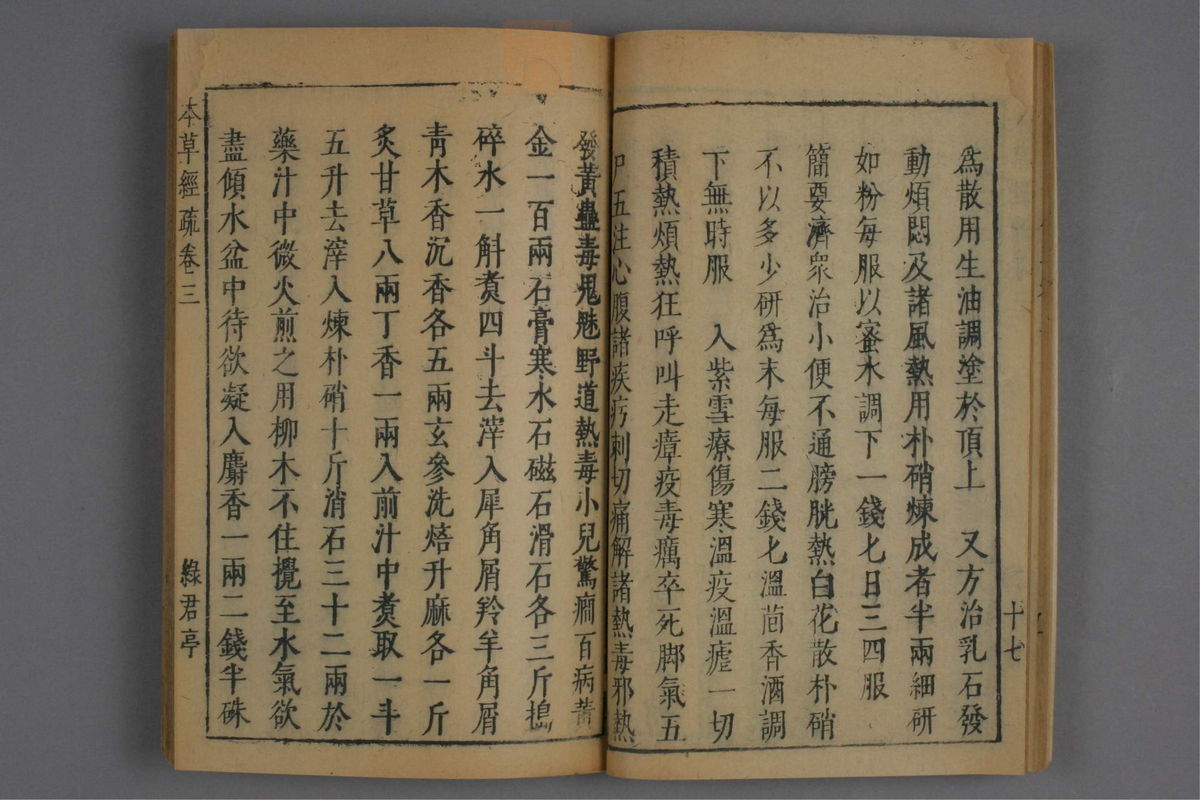 爲散用生油調塗於頂上　又方治乳石發
動煩悶及諸風熱用朴硝煉成者半兩細研
如粉每服以蜜水調下一錢匕日三四服
簡要濟衆治小便不通膀胱熱白花散朴硝
不以多少研爲末每服二錢匕溫茴香酒調
下無時服　入紫雪療傷寒溫疫溫瘧一切
積熱煩熱狂呼叫走瘴疫毒癘卒死脚氣五
尸五注心腹諸疾㽲刺切痛解諸熱毒邪熱
十七
發黃蠱毒鬼魅野道熱毒小兒驚癎百病黃
金一百兩石膏寒水石磁石滑石各三斤搗
碎水一斛煑四斗去滓入犀角屑羚羊角屑
靑木香沉香各五兩玄參洗焙升麻各一斤
炙甘草八兩丁香一兩入前汁中煑取一斗
五升去滓入煉朴硝十斤消石三十二兩於
藥汁中微火煎之用柳木不住攪至水氣欲
盡傾水盆中待欲凝入麝香一兩二錢半硃
本草經疏卷三
綠君亭